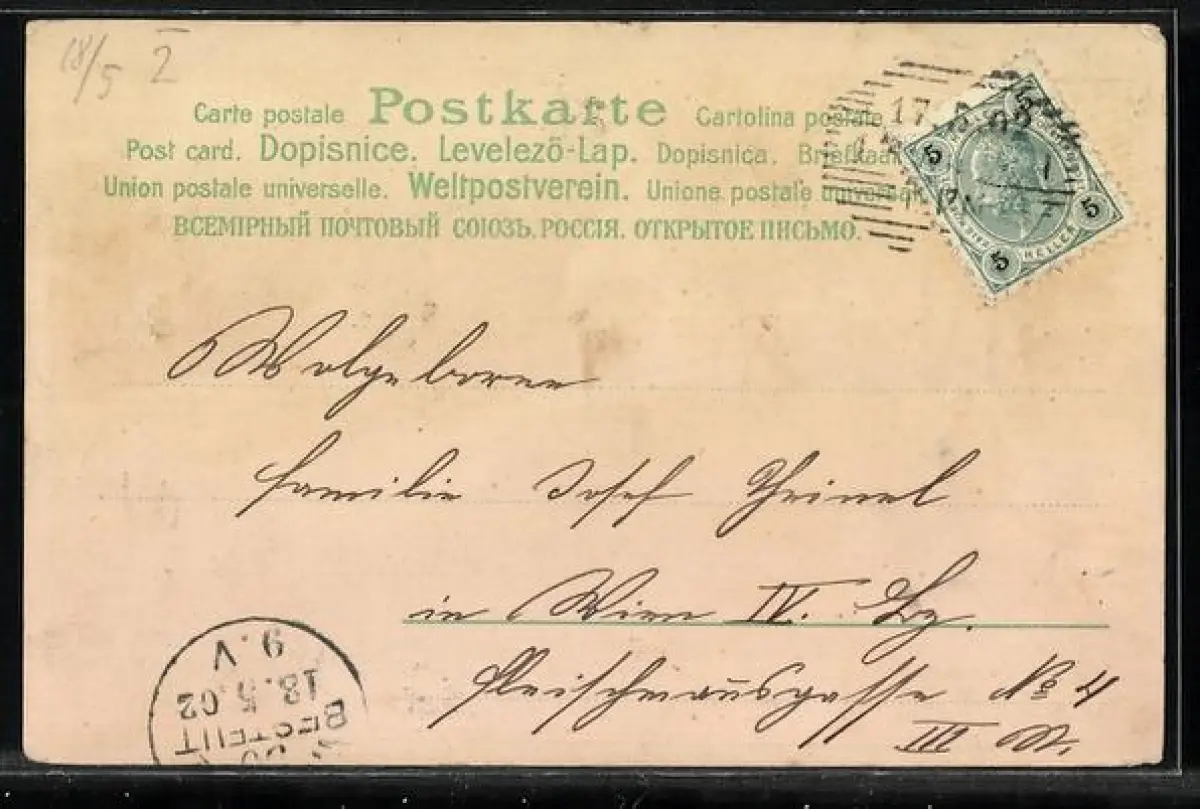 18/5 2
Carte postale Postkarte Cartolina postale
Post card. Dopisnice. Levelező-Lap. Dopisnica. Briefkaart
Union postale universelle. Weltpostverein. Unione postale universale
ВСЕМІРНЫЙ ПОЧТОВЫЙ СОЮЗЪ. РОССІЯ. ОТКРЫТОЕ ПИСЬМО.
17. 02
5 5 5
HELLER
Wolgeboren
Familie Josef
in Wien IV. Bz.
No 4
III St.
9.V
18.5.02
BESTELLT